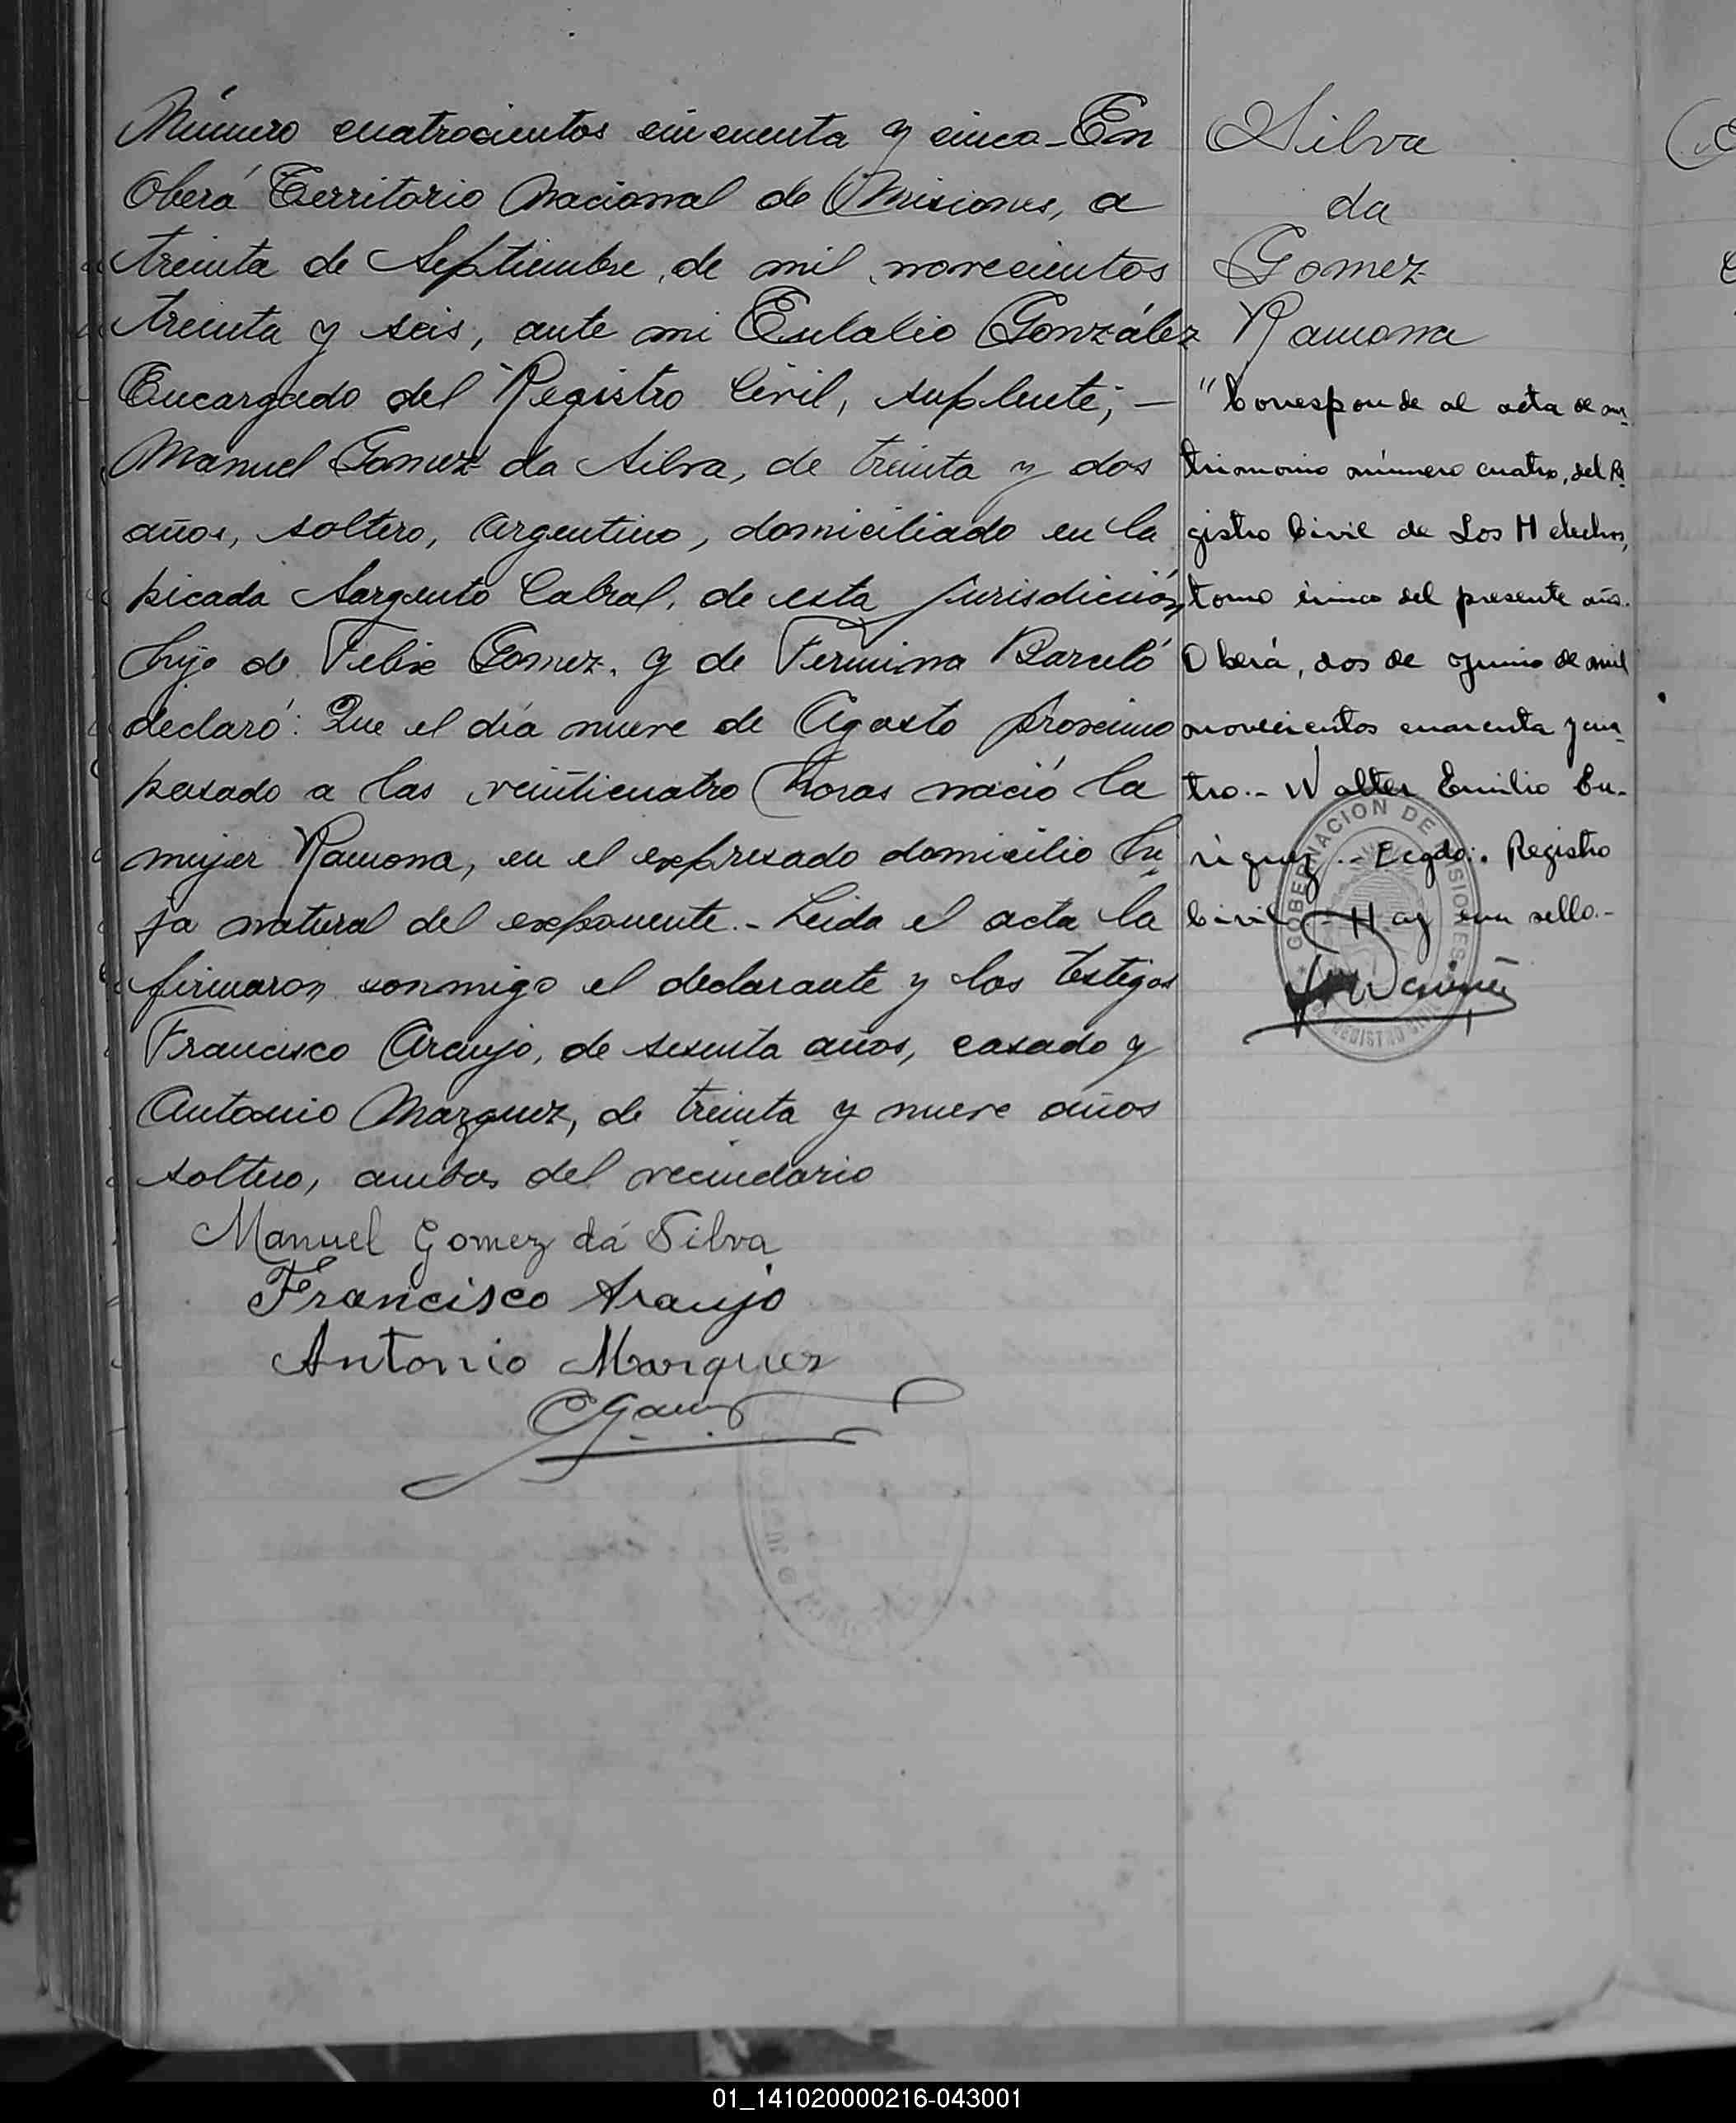 Número cuatrocientos cincuenta y cinco - En
Oberá Territorio Nacional de Misiones, a
treinta de Septiembre, de mil novecientos
treinta y seis, ante mi Eulalio González
Encargado del Registro Civil, suplente; —
Manuel Gomez da Silva, de treinta y dos
años, soltero, Argentino, domiciliado en la
picada Sargento Cabral, de esta jurisdicción,
hijo de Felix Gomez, y de Fermina Barceló
declaró: Que el día nueve de Agosto proximo
pasado a las veinticuatro horas nació la
mujer Ramona, en el expresado domicilio hi
ja natural del exponente. - Leida el acta la
firmaron conmigo el declarante y los testigos
Francisco Araujo, de sesenta años, casado y
Antonio Marquez, de treinta y nueve años
soltero, ambos del vecindario
Manuel Gomez dá Silva
Francisco Araujo
Antonio Marquez
Silva
da
Gomez
Ramona
"Corresponde al acta de ma-
trimonio número cuatro, del Re
gistro Civil de Los Helechos,
tomo único del presente año.
Oberá, dos de Junio de mil
novecientos cuarenta y cua-
tro.- Walter Emilio
Ecgdo. Registro
Civil - Hay un sello.-
GOBERNACION DE MISIONES
REGISTRO CIVIL
01_141020000216-043001